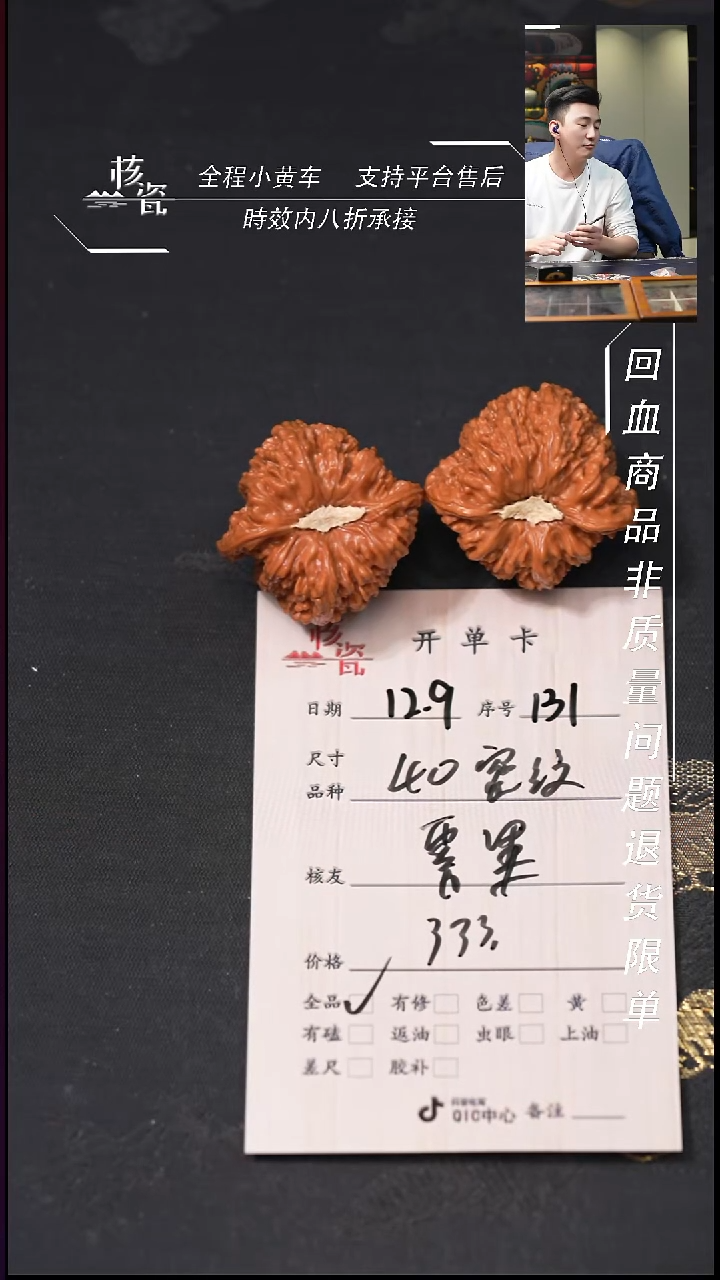 核瓷
全程小黄车 支持平台售后
時效内八折承接
回血商品非质量问题退货限单
核瓷
开单卡
日期 12.9 序号 131
尺寸
品种 40 密纹
核友
价格 333.
全品 有修 色差 黄
有磕 返油 虫眼 上油
差尺 胶补
QIC中心 备注